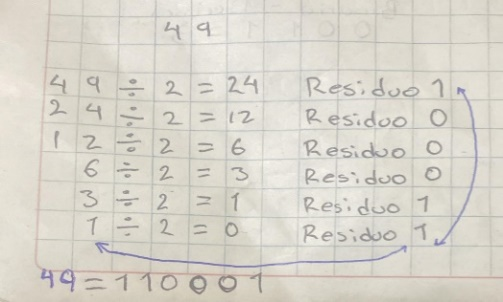 49
49 ÷ 2 = 24 Residuo 1
24 ÷ 2 = 12 Residuo 0
12 ÷ 2 = 6 Residuo 0
6 ÷ 2 = 3 Residuo 0
3 ÷ 2 = 1 Residuo 1
1 ÷ 2 = 0 Residuo 1
49 = 110001